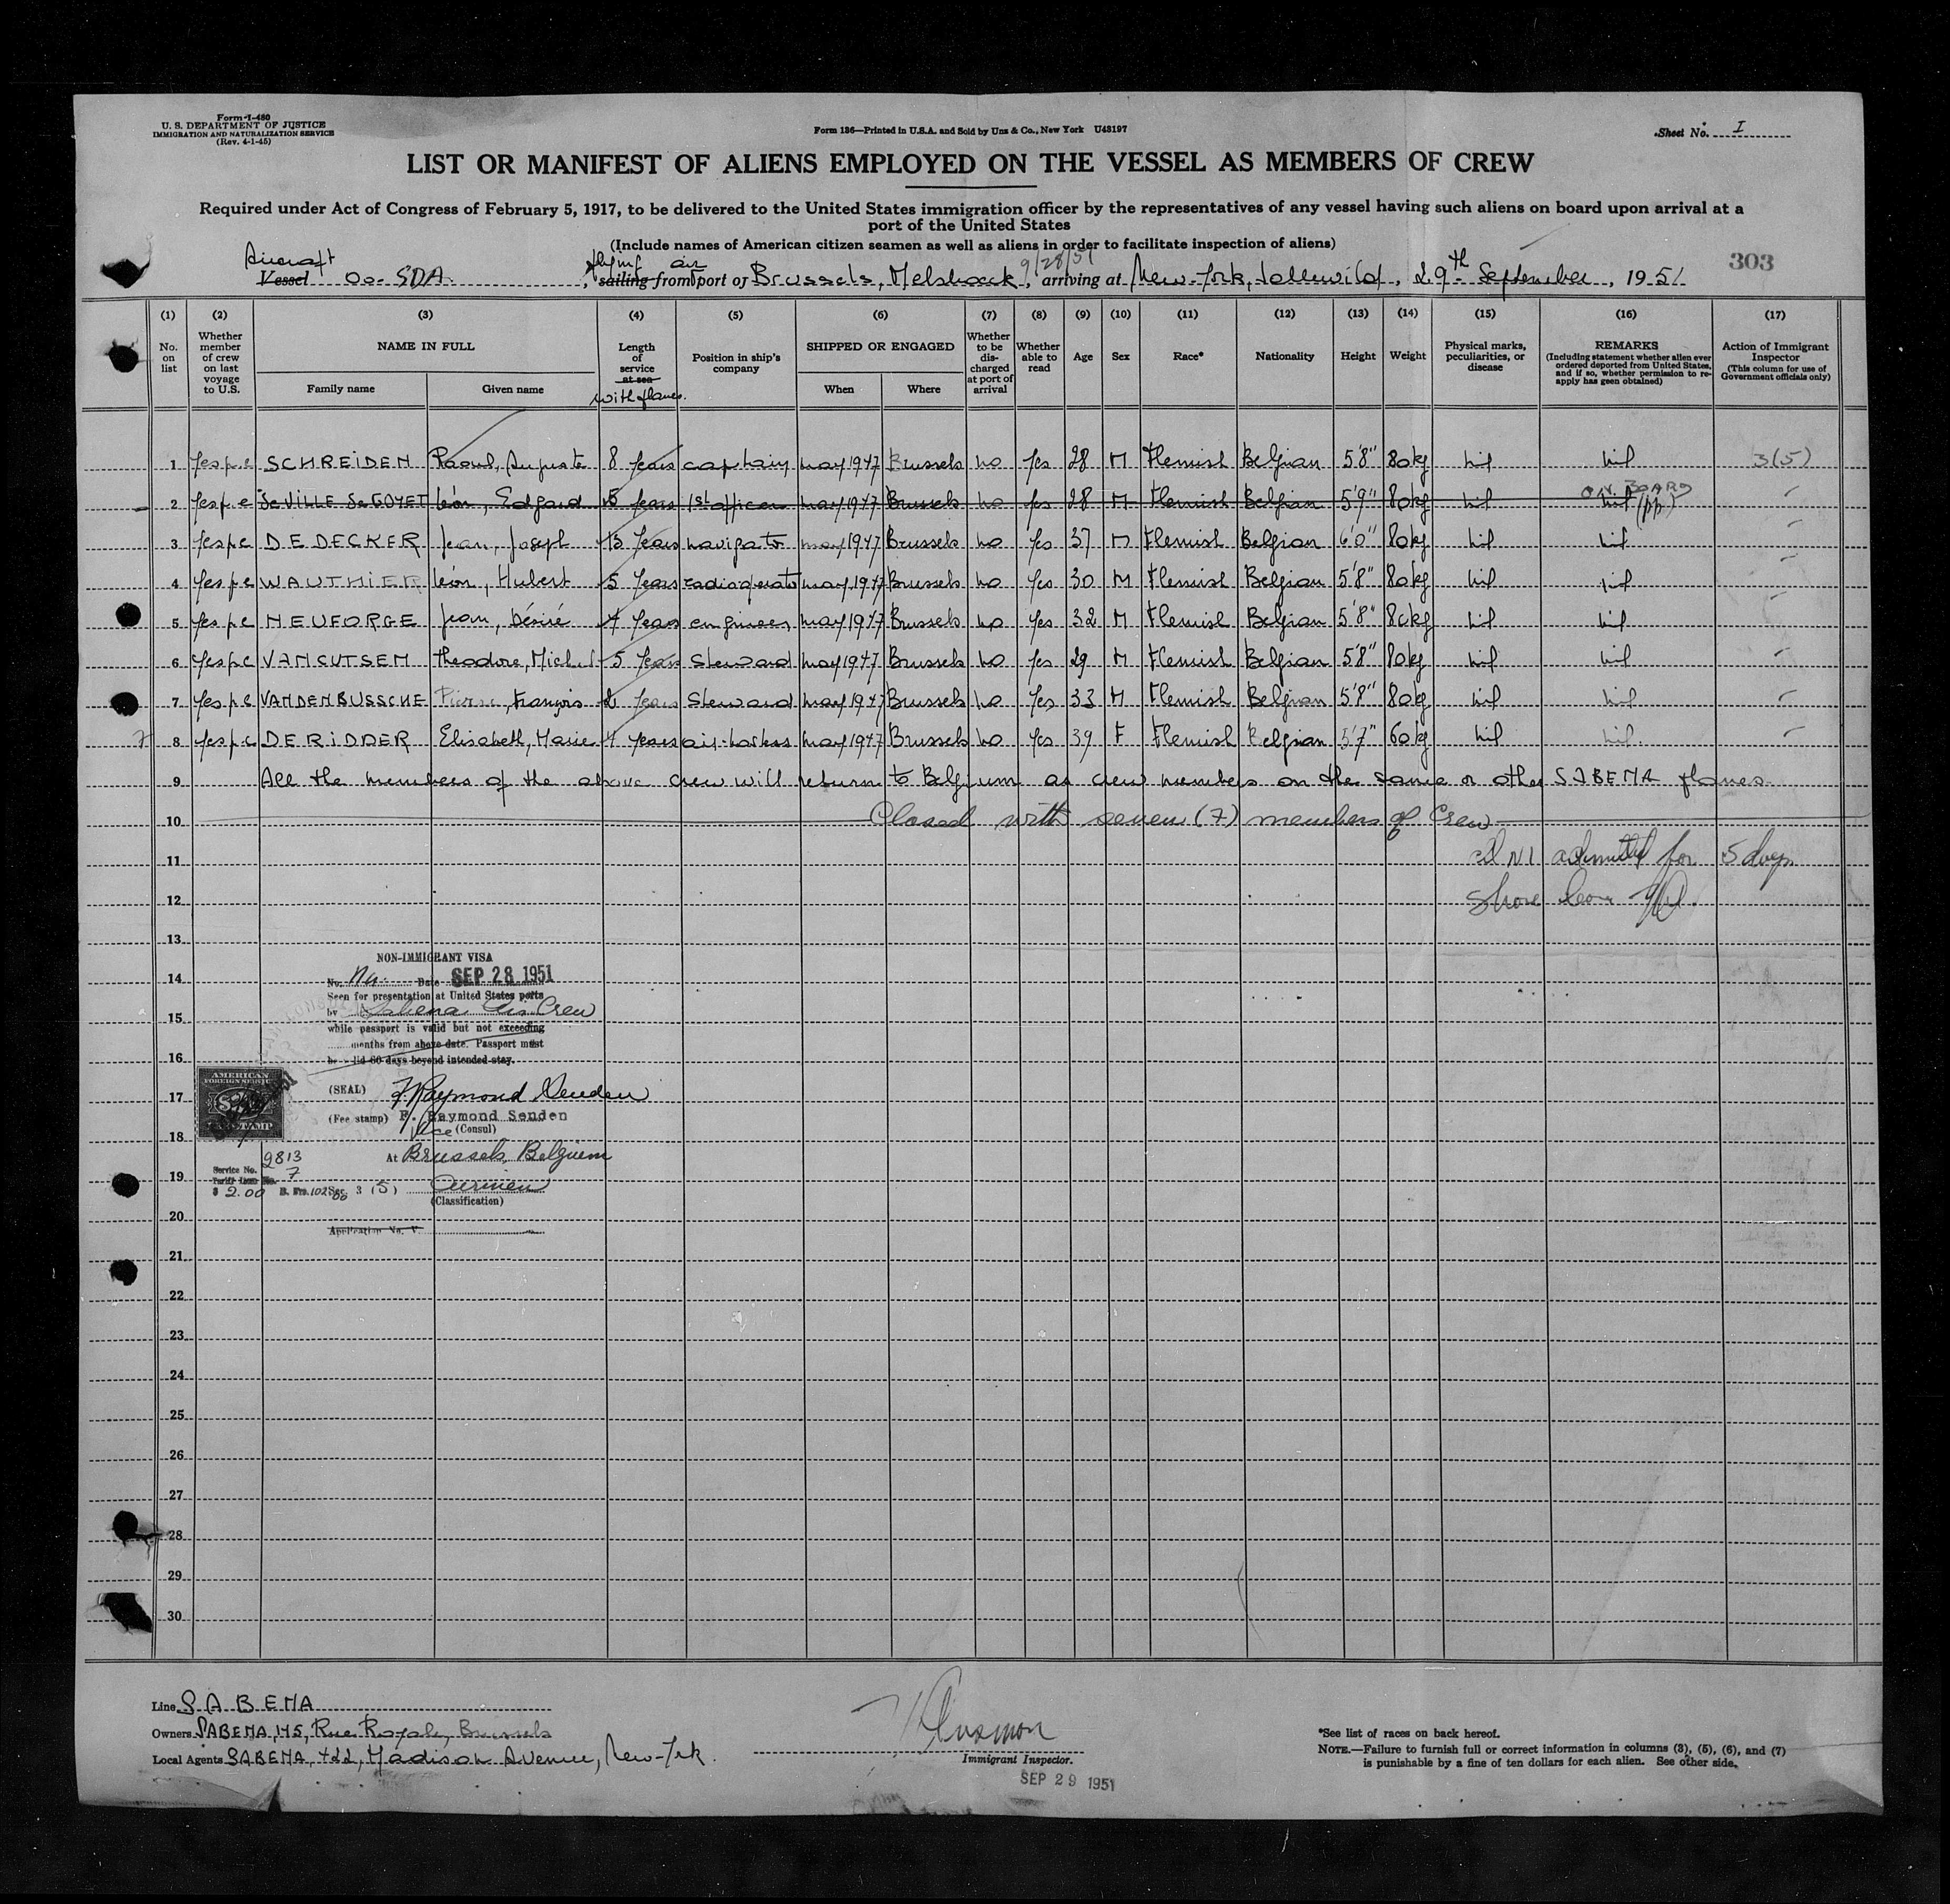 Form I-480
U. S. DEPARTMENT OF JUSTICE
IMMIGRATION AND NATURALIZATION SERVICE
(Rev. 4-1-45)
Form 186—Printed in U.S.A. and Sold by Unz & Co., New York U48197
Sheet No. I
LIST OR MANIFEST OF ALIENS EMPLOYED ON THE VESSEL AS MEMBERS OF CREW
Required under Act of Congress of February 5, 1917, to be delivered to the United States immigration officer by the representatives of any vessel having such aliens on board upon arrival at a
port of the United States
(Include names of American citizen seamen as well as aliens in order to facilitate inspection of aliens)
303
Aircraft flying air 9/28/51
Vessel OO-SDA, sailing from port of Brussels, Melsbroek, arriving at New-York, Idlewild, 29th September, 1951
(1) (2) (3) (4) (5) (6) (7) (8) (9) (10) (11) (12) (13) (14) (15) (16) (17)
No. on list
Whether member of crew on last voyage to U.S.
NAME IN FULL
Family name
Given name
Length of service at sea
with planes.
Position in ship's company
SHIPPED OR ENGAGED
When
Where
Whether to be discharged at port of arrival
Whether able to read
Age
Sex
Race*
Nationality
Height
Weight
Physical marks, peculiarities, or disease
REMARKS
(Including statement whether alien ever ordered deported from United States, and if so, whether permission to re-apply has geen obtained)
Action of Immigrant Inspector
(This column for use of Government officials only)
1 Yes p.c SCHREIDEN Raoul, Auguste 8 years captain may 1947 Brussels no Yes 28 M Flemish Belgian 5'8" 80kg nil nil 3(5)
ON BOARD
2 Yes p.c de VILLE de GOYET Léon, Edgard 5 years 1st officer may 1947 Brussels no yes 28 M Flemish Belgian 5'9" 80kg nil nil (pp)
3 Yes p.c DEDECKER Jean, Joseph 13 years navigator may 1947 Brussels no Yes 37 M Flemish Belgian 6'0" 80kg nil nil
4 Yes p.c WAUTHIER Léon, Hubert 5 years radioperator may 1947 Brussels no Yes 30 M Flemish Belgian 5'8" 80kg nil nil
5 Yes p.c NEUFORGE Jean, Désiré 4 years engineer may 1947 Brussels no Yes 32 M Flemish Belgian 5'8" 80kg nil nil
6 Yes p.c VANCUTSEM Theodore, Michel 5 years Steward may 1947 Brussels no Yes 29 M Flemish Belgian 5'8" 80kg nil nil
7 Yes p.c VANDENBUSSCHE Pierre, François 2 years Steward may 1947 Brussels no Yes 33 M Flemish Belgian 5'8" 80kg nil nil
7 8 Yes p.c DERIDDER Elisabeth, Marie 4 years air-hostess may 1947 Brussels no Yes 39 F Flemish Belgian 5'7" 60kg nil nil.
9 All the members of the above crew will return to Belgium as crew members on the same or other SABENA planes.
10 Closed with seven (7) members of Crew
11 admitted for 5 days
12 Shore leave
13
NON-IMMIGRANT VISA
14 No. Date SEP 28 1951
Seen for presentation at United States ports
15 by Sabena Air Crew
while passport is valid but not exceeding
months from above date. Passport must
16 be valid 60 days beyond intended stay.
AMERICAN
FOREIGN SERVICE
FEE STAMP
17 (SEAL) F. Raymond Senden
(Fee stamp) F. Raymond Senden
18 Vice (Consul)
At Brussels, Belgium
Service No. 9813
19 Tariff Item No. 7
$ 2.00 B. Frs. 102.00 Sec. 3 (5) Airmen
(Classification)
20
Application No. V
21
22
23
24
25
26
27
28
29
30
Line SABENA
Owners SABENA, 145, Rue Royale, Brussels
Local Agents SABENA, 422, Madison Avenue, New-York.
Immigrant Inspector.
SEP 29 1951
*See list of races on back hereof.
NOTE.—Failure to furnish full or correct information in columns (3), (5), (6), and (7)
is punishable by a fine of ten dollars for each alien. See other side.